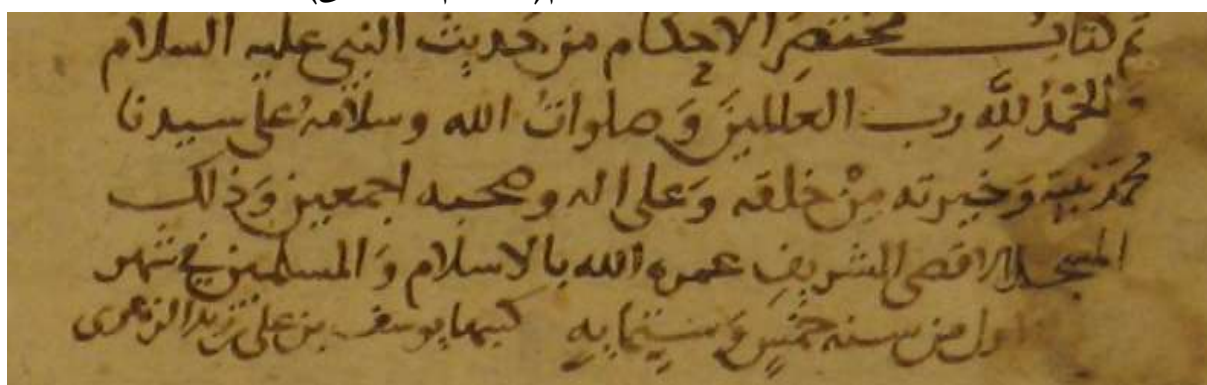 تم كتاب مختصر الاحكام من حديث النبي عليه السلام
والحمد لله رب العلمين وصلوات الله وسلامه على سيدنا
محمد نبيه وخيرته من خلقه وعلى اله وصحبه اجمعين وذلك
المسجد الاقصى الشريف عمره الله بالاسلام والمسلمين في شهر
اول من سنه خمس وستمايه كتبها يوسف بن علي بن زيد